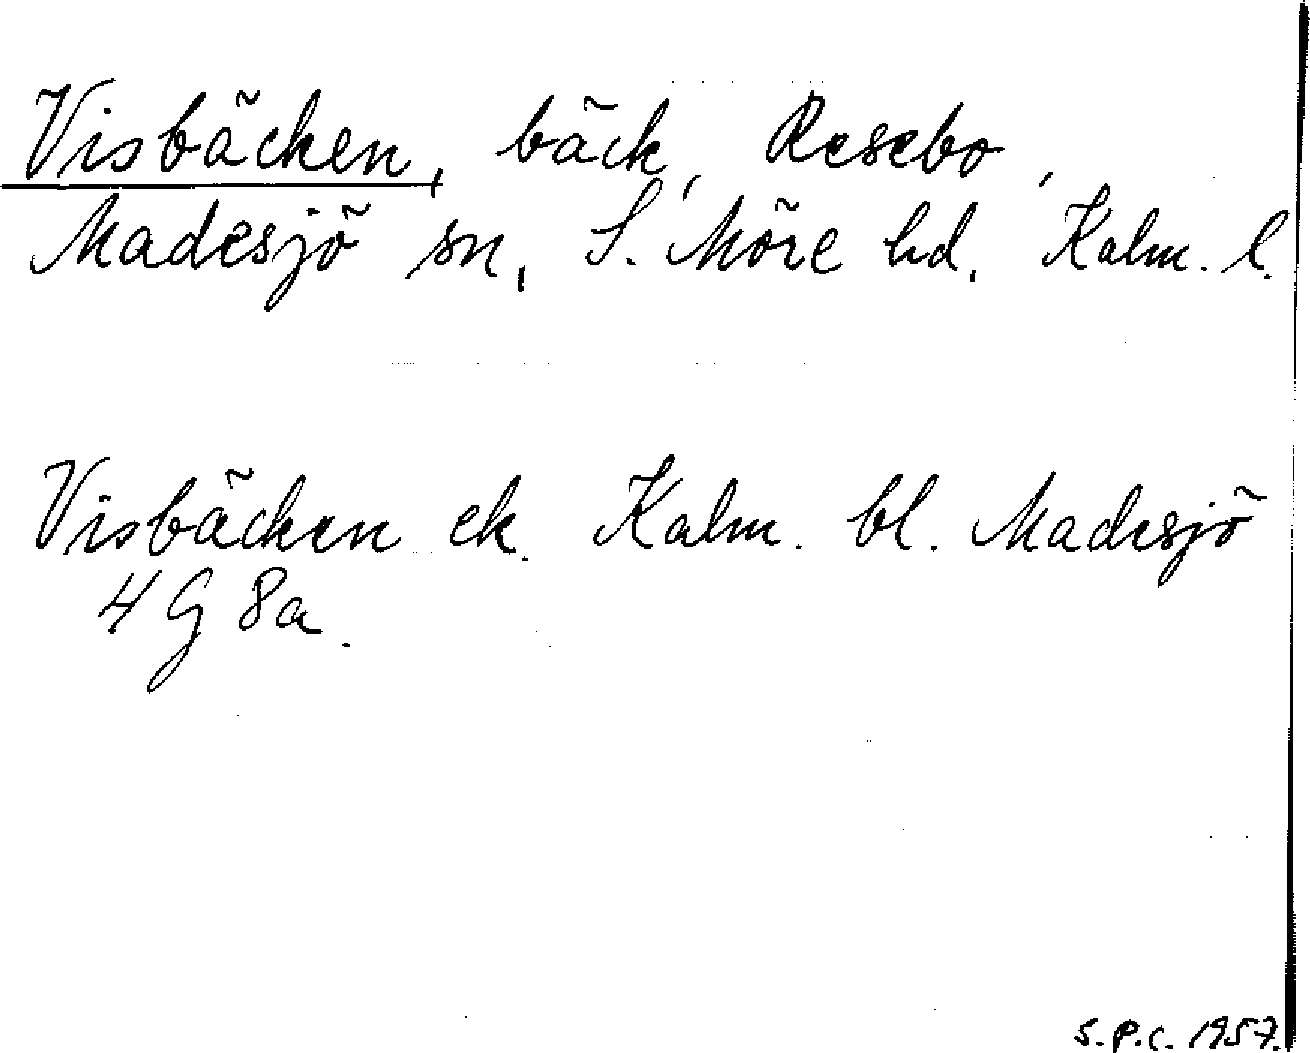 Visbäcken, bäck, Resebo,
Madesjö sn, S. Möre hd, Kalm. l.
Visbäcken ek. Kalm. bl. Madesjö
4 G 8a.
S.P.C. 1957.